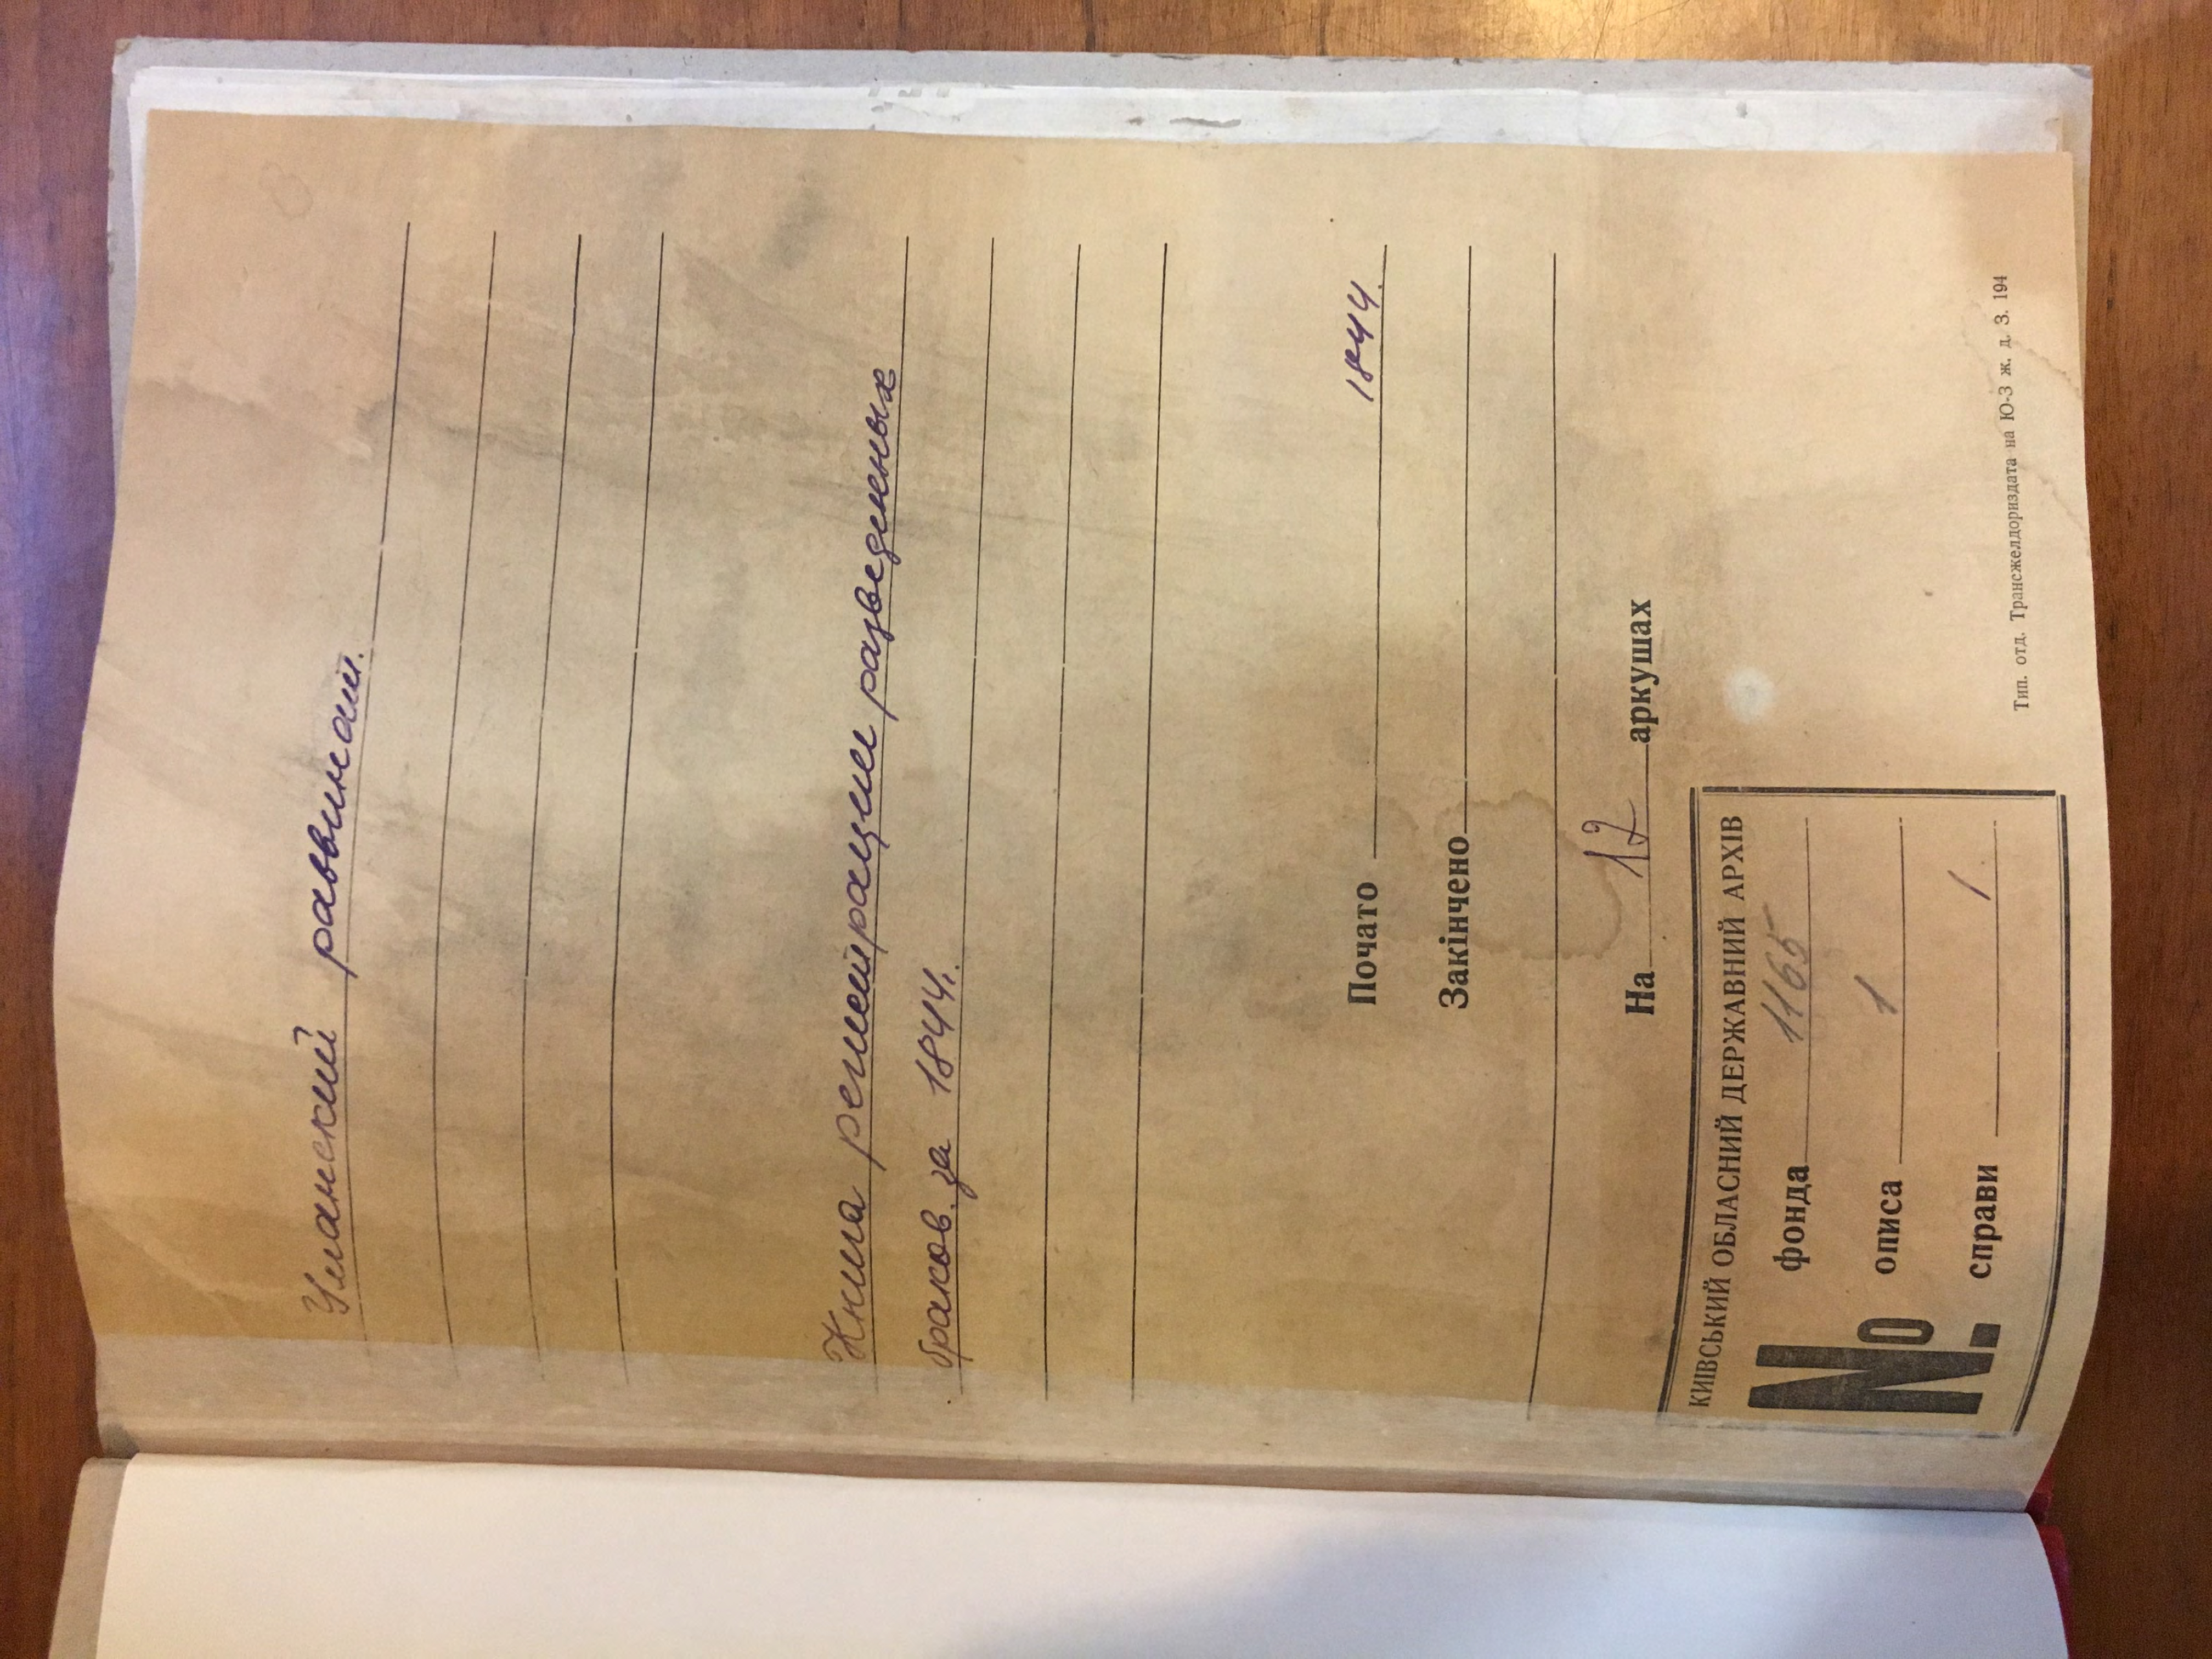 Уманский раввинат.
Книга регистрации разведенных
браков за 1844г.
Почато 1844.
Закінчено
На 12 аркушах
КИЇВСЬКИЙ ОБЛАСНИЙ ДЕРЖАВНИЙ АРХІВ
№ фонда 1165
описа 1
справи 1
Тип. отд. Трансжелдориздата на Ю-З ж. д. З. 194